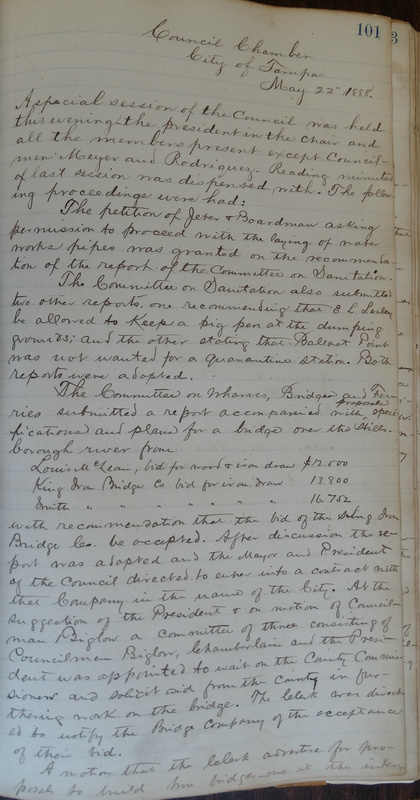 101
3
Council Chamber
City of Tampa
May 22" 1888.
A special session of the Council was held
this evening the president in the chair and
all the members present except Council-
men Meyer and Rodriguez. Reading minutes
of last session was dispensed with. The follow-
ing proceedings were had:
The petition of Jeter & Boardman asking
permission to proceed with the laying of water
works pipes was granted on the recommenda
tion of the report of the Committee on Sanitation.
The Committee on Sanitation also submitted
two other reports, one recommending that E L Lesley
be allowed to keep a pig pen at the dumping
grounds; and the other stating that Ballast Point
was not wanted for a Quarantine station. Both
reports were adopted.
The Committee on Wharves, Bridges and Fer-
ries submitted a report accompanied with proposals speci
fications and plans for a bridge over the Hills-
borough river from
Louis McLean, bid for wood & iron draw $12.000
King Iron Bridge Co bid for iron draw 13.800
Smith " " " " " " 16.752
with recommendation that the bid of the King Iron
Bridge Co. be accepted. After discussion the re-
port was adopted and the Mayor and President
of the Council directed to enter into a contract with
that Company in the name of the City. At the
suggestion of the President & on motion of Council-
man Biglow a committee of three consisting of
Councilmen Biglow, Chamberlain and the Presi-
dent was appointed to wait on the County Commis-
sioners and solicit aid from the county in fur-
thering work on the bridge. The Clerk was direct-
ed to notify the Bridge Company of the acceptance
of their bid.
A motion that the Clerk advertise for pro-
posals to build two bridges one at the